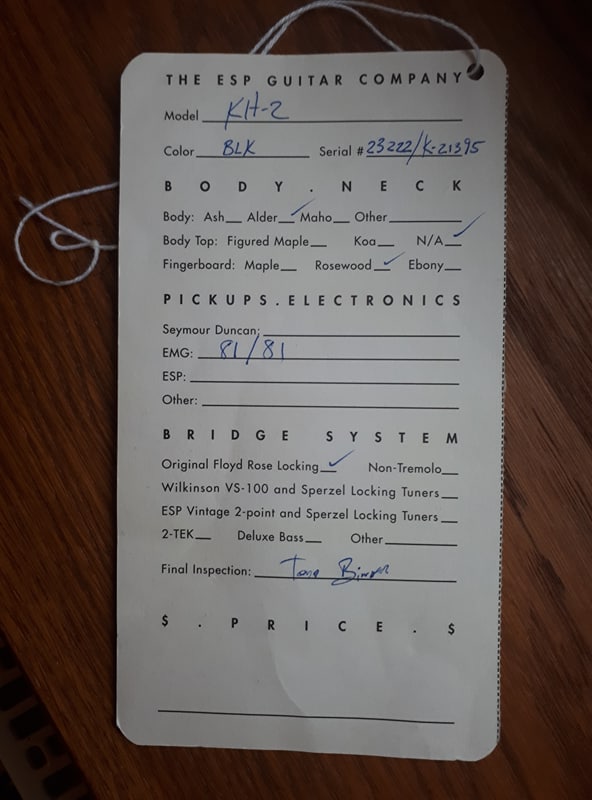 THE ESP GUITAR COMPANY
Model KH-2
Color BLK Serial # 23222/K-21395
BODY.NECK
Body: Ash__ Alder__✓ Maho__ Other__
Body Top: Figured Maple__ Koa__ N/A__✓
Fingerboard: Maple__ Rosewood__✓ Ebony__
PICKUPS.ELECTRONICS
Seymour Duncan:
EMG: 81/81
ESP:
Other:
BRIDGE SYSTEM
Original Floyd Rose Locking__✓ Non-Tremolo__
Wilkinson VS-100 and Sperzel Locking Tuners__
ESP Vintage 2-point and Sperzel Locking Tuners__
2-TEK__ Deluxe Bass__ Other__
Final Inspection:
$.PRICE.$